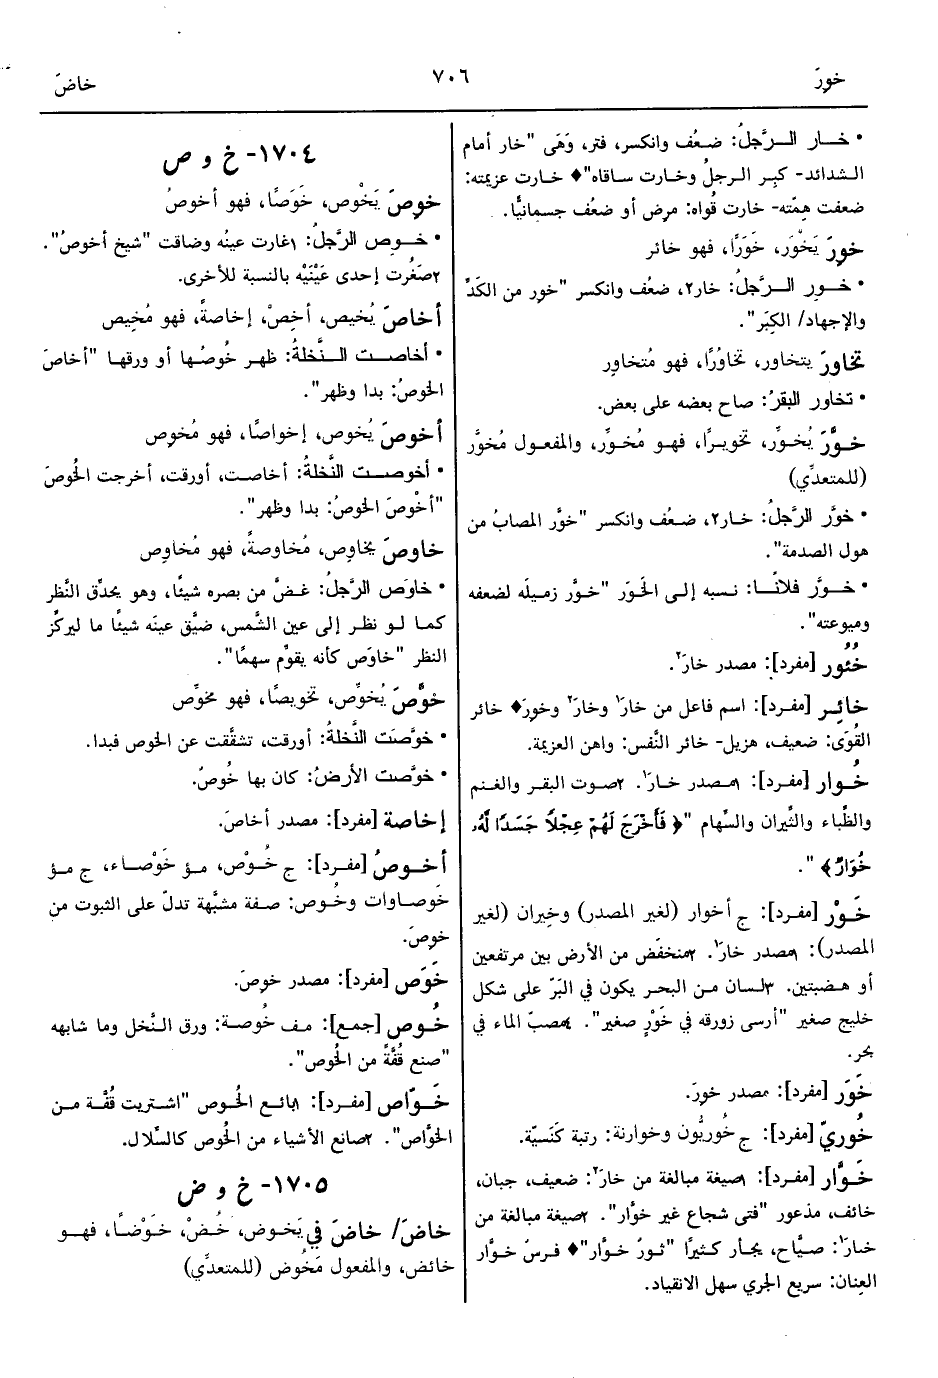 خورَ
٧٠٦
خاضَ
• خــار الــرَّجلُ: ضعُف وانكسر، فتر، وَهَى "خار أمام
الشدائد- كبِر الرجلُ وخارت ساقاه"♦ خارت عزيمته:
ضعفت هِمّته- خارت قُواه: مرض أو ضعُف جسمانيًّا.
خوِرَ يَخْوَر، خَوَرًا، فهو خائر
• خــوِر الــرَّجلُ: خار٢، ضعُف وانكسر "خوِر من الكَدّ
والإجهاد/ الكِبَر".
تخاورَ يتخاور، تخاوُرًا، فهو مُتخاوِر
• تخاور البقرُ: صاح بعضه على بعض.
خوَّرَ يُخوِّر، تخويرًا، فهـو مُخوِّر، والمفعول مُخوَّر
(للمتعدِّي)
• خوَّر الرَّجلُ: خـار٢، ضعُف وانكسر "خوَّر المصابُ من
هول الصدمة".
• خــوَّر فلانًــا: نسبه إلى الخَوَر "خوَّر زميلَه لضعفه
وميوعته".
خُئُور [مفرد]: مصدر خارَ٢.
خائـِر [مفـرد]: اسم فاعل من خارَ١ وخارَ٢ وخورَ♦ خائر
القُوَى: ضعيف، هزيل- خائر النَّفس: واهن العزيمة.
خُـوار [مفـرد]: ١مـصدر خـارَ١. ٢صـوت البقـر والغـنم
والظِّباء والثِّيران والسِّهام "﴿ فَأَخْرَجَ لَهُمْ عِجْلًا جَسَدًا لَهُ
خُوَارٌ﴾ ".
خَـوْر [مفـرد]: ج أخوار (لغير المصدر) وخِيران (لغير
المصدر): ١مصدر خارَ١. ٢منخفَض من الأرض بين مرتفعين
أو هـضبتين. ٣لسان مـن البحـر يكون في البَرّ على شكل
خليج صغير "أرسى زورقه في خَوْرٍ صغير". ٤مصبّ الماء في
بحر.
خَوَر [مفرد]: مصدر خوِرَ.
خُوريّ [مفرد]: ج خُوريُّون وخوارنة: رتبة كَنَسيّة.
خَـوَّار [مفـرد]: ١صيغة مبالغة من خارَ٢: ضعيف، جبان،
خائف، مذعور "فتى شجاع غير خوَّار". ٢صيغة مبالغة من
خـارَ١: صـيَّاح، يجـأر كـثيرًا "ثـورٌ خـوَّار"♦ فـرسٌ خـوَّار
العِنان: سريع الجري سهل الانقياد.
١٧٠٤- خ و ص
خوِصَ يَخْوَص، خَوَصًا، فهو أخوصُ
• خــوِص الرَّجلُ: ١غارت عينُه وضاقت "شيخ أخوصُ".
٢صَغُرت إحدى عَيْنَيْه بالنسبة للأخرى.
أخاصَ يُخيص، أخِصْ، إخاصةً، فهو مُخِيص
• أخاصـت الـنَّخلةُ: ظهـر خُوصُـها أو ورقهـا "أخاصَ
الخوصُ: بدا وظهر".
أخوصَ يُخوص، إخواصًا، فهو مُخوِص
• أخوصــت النَّخلةُ: أخاصت، أورقت، أخرجت الخُوصَ
"أخْوصَ الخوصُ: بدا وظهر".
خاوصَ يخاوِص، مُخاوصةً، فهو مُخاوِص
• خاوَص الرَّجلُ: غـضَّ من بصره شيئًا، وهو يحدِّق النَّظر
كمـا لـو نظر إلى عين الشَّمس، ضيَّق عينَه شيئًا ما ليركِّز
النظر "خاوَص كأنه يقوِّم سهمًا".
خوَّصَ يُخوِّص، تخويصًا، فهو مخوِّص
• خوَّصَت النَّخلةُ: أورقت، تشقَّقت عن الخوص فبدا.
• خوَّصت الأرضُ: كان بها خُوصٌ.
إخاصة [مفرد]: مصدر أخاصَ.
أخــوصُ [مفـرد]: ج خُـوْص، مـؤ خَوْصـاء، ج مـؤ
خَوصـاوات وخُـوص: صـفة مشبَّهة تدلّ على الثبوت من
خوِصَ.
خَوَص [مفرد]: مصدر خوِصَ.
خُـوص [جمع]: مـف خُوصـة: ورق النَّخل وما شابهه
"صنع قُفَّةً من الخُوص".
خَـوَّاص [مفـرد]: ١بائـع الخُـوص "اشـتريت قُفَّـة مـن
الخوَّاص". ٢صانع الأشياء من الخُوص كالسِّلال.
١٧٠٥- خ و ض
خاضَ/ خاضَ في يَخـوض، خُـضْ، خَـوْضًـا، فهــو
خائض، والمفعول مَخُوض (للمتعدِّي)